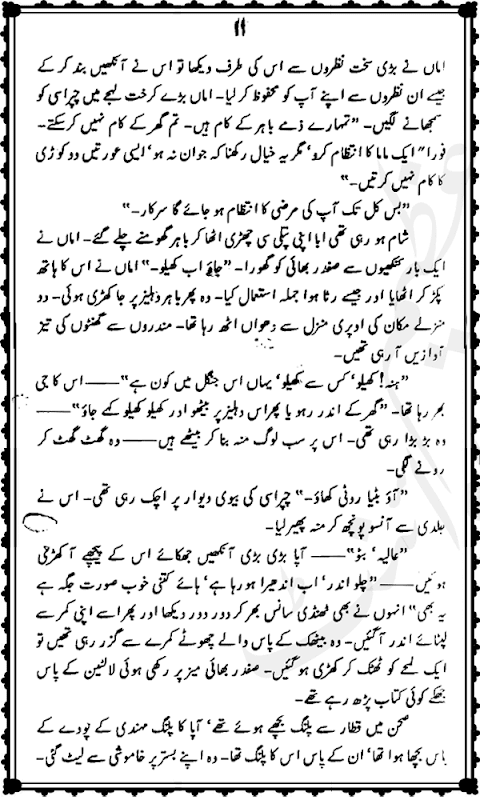 ۱۱
اماں نے بڑی سخت نظروں سے اس کی طرف دیکھا تو اس نے آنکھیں بند کر کے
جیسے ان نظروں سے اپنے آپ کو محفوظ کر لیا۔ اماں بڑے کرخت لہجے میں چپراسی کو
سمجھانے لگیں۔ "تمہارے ذمے باہر کے کام ہیں۔ تم گھر کے کام نہیں کر سکتے۔
فوراً" ایک ماما کا انتظام کرو' مگر یہ خیال رکھنا کہ جوان نہ ہو' ایسی عورتیں دو کوڑی
کا کام نہیں کرتیں۔"
"بس کل تک آپ کی مرضی کا انتظام ہو جائے گا سرکار۔"
شام ہو رہی تھی ابا اپنی پتلی سی چھڑی اٹھا کر باہر گھومنے چلے گئے۔ اماں نے
ایک بار کنکھیوں سے صفدر بھائی کو گھورا۔ "جاؤ اب کھیلو۔" اماں نے اس کا ہاتھ
پکڑ کر اٹھایا اور جیسے رٹا ہوا جملہ استعمال کیا۔ وہ پھر باہر دہلیز پر جا کھڑی ہوئی۔ دو
منزلے مکان کی اوپری منزل سے دھواں اٹھ رہا تھا۔ مندروں سے گھنٹوں کی تیز
آوازیں آ رہی تھیں۔
"ہنہ! کھیلو' کس سے کھیلو' یہاں اس جنگل میں کون ہے"—— اس کا جی
بھر رہا تھا۔ "گھر کے اندر رہو یا پھر اس دہلیز پر بیٹھو اور کھیلو کھیلو کے جاؤ"——
وہ بڑبڑا رہی تھی۔ اس پر سب لوگ منہ بنا کر بیٹھے ہیں—— وہ گھٹ گھٹ کر
رونے لگی۔
"آؤ بٹیا روٹی کھاؤ۔" چپراسی کی بیوی دیوار پر اچک رہی تھی۔ اس نے
جلدی سے آنسو پونچھ کر منہ پھیر لیا۔
"عالیہ' بنو"—— آپا بڑی بڑی آنکھیں جھکائے اس کے پیچھے آ کھڑی
ہوئیں—— "چلو اندر' اب اندھیرا ہو رہا ہے' ہائے کتنی خوب صورت جگہ ہے
یہ بھی" انہوں نے بھی ٹھنڈی سانس بھر کر دور دور دیکھا اور پھر اسے اپنی کمر سے
لپٹائے اندر آ گئیں۔ وہ بیٹھک کے پاس والے چھوٹے کمرے سے گزر رہی تھیں تو
ایک لمحے کو ٹھٹک کر کھڑی ہو گئیں۔ صفدر بھائی میز پر رکھی ہوئی لالٹین کے پاس
جھکے کوئی کتاب پڑھ رہے تھے۔
صحن میں قطار سے پلنگ بچھے ہوئے تھے' آپا کا پلنگ مہندی کے پودے کے
پاس بچھا ہوا تھا' ان کے پاس اس کا پلنگ تھا۔ وہ اپنے بستر پر خاموشی سے لیٹ گئی۔